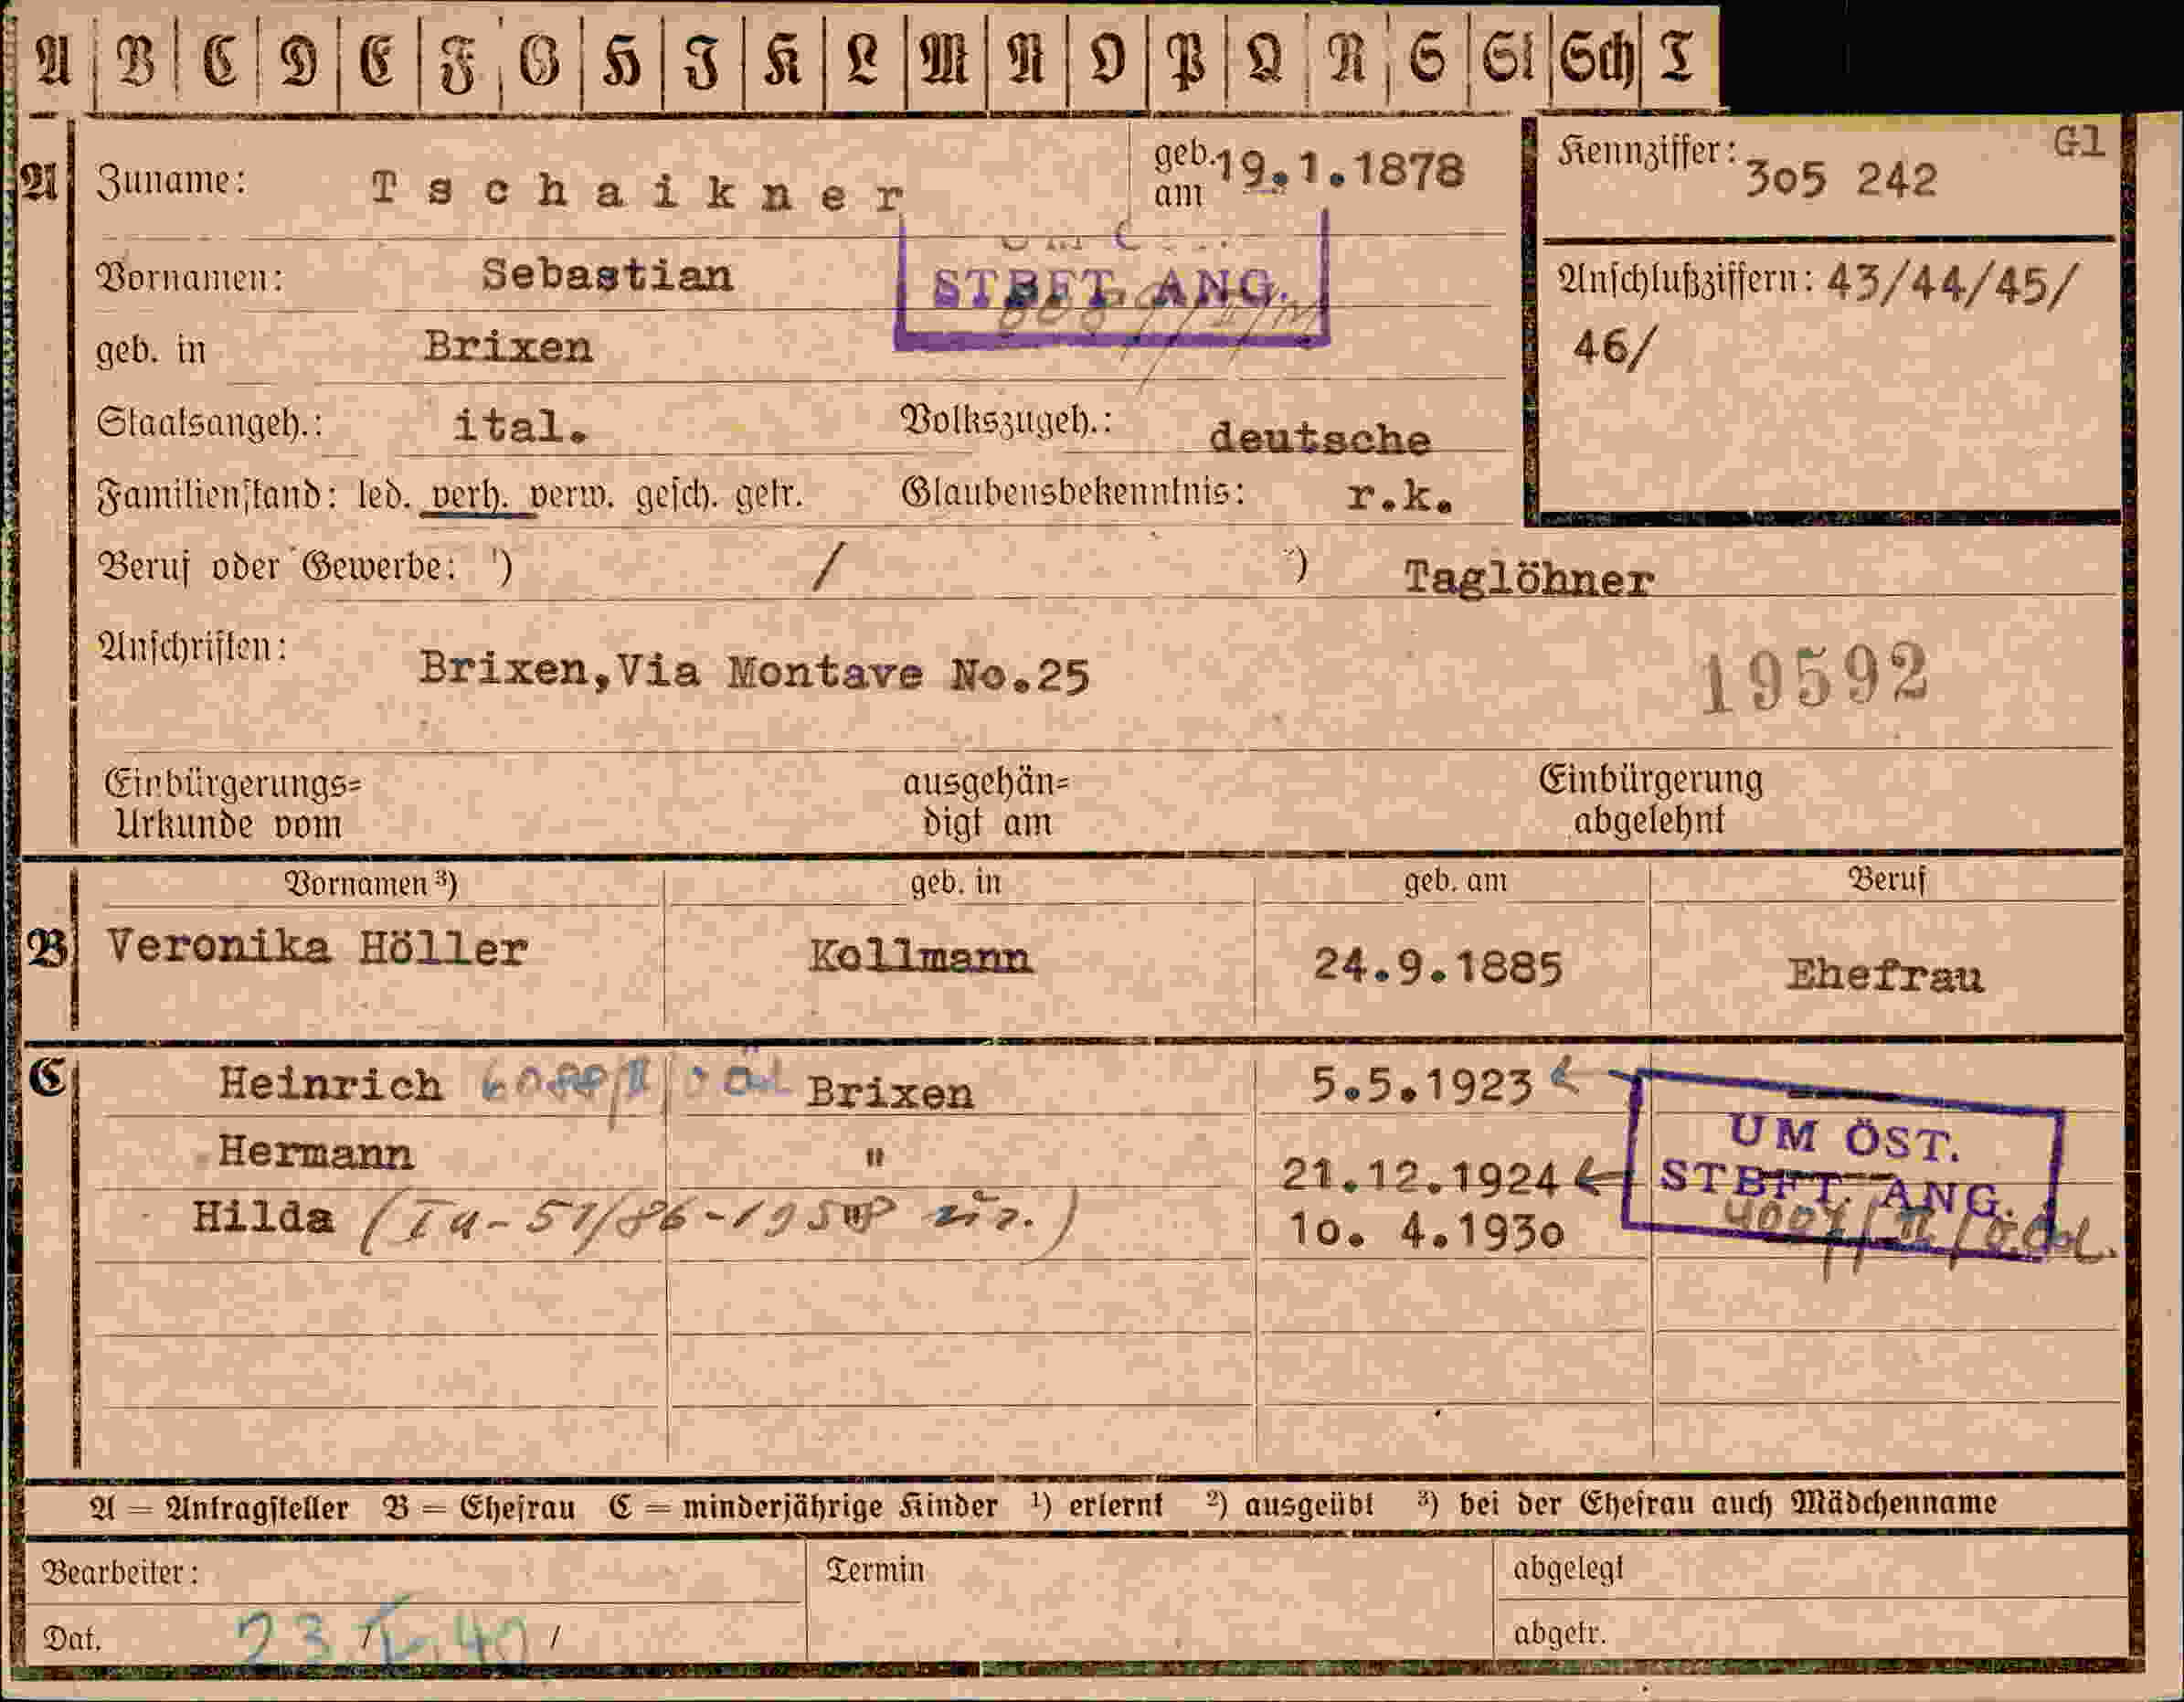 A B C D E F G H J K L M N O P Q R S St Sch T
A Zuname: Tschaikner geb. am 19.1.1878 Kennziffer: 305 242 Gl
Vornamen: Sebastian STBFT. ANG. Anschlußziffern: 43/44/45/
geb. in Brixen 46/
Staatsangeh.: ital. Volkszugeh.: deutsche
Familienstand: led. verh. verw. gesch. getr. Glaubensbekenntnis: r.k.
Beruf oder Gewerbe: ¹) / ²) Taglöhner
Anschriften: Brixen,Via Montave No.25 19592
Einbürgerungs= ausgehän= Einbürgerung
Urkunde vom digt am abgelehnt
Vornamen ³) geb. in geb. am Beruf
B Veronika Höller Kollmann 24.9.1885 Ehefrau
C Heinrich Brixen 5.5.1923
UM ÖST.
Hermann " 21.12.1924 STBFT. ANG.
Hilda 10. 4.1930
A = Antragsteller B = Ehefrau C = minderjährige Kinder ¹) erlernt ²) ausgeübt ³) bei der Ehefrau auch Mädchenname
Bearbeiter: Termin abgelegt
Dat. abgetr.